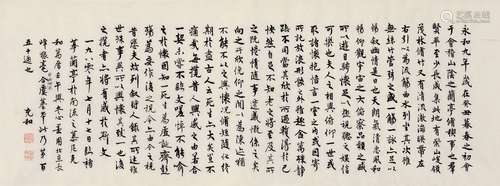 永和九年歲在癸丑暮春之初會
于會稽山陰之蘭亭脩禊事也羣
賢畢至少長咸集此地有崇山峻領
茂林脩竹又有清流激湍暎帶左
右引以為流觴曲水列坐其次雖
無絲竹管弦之盛一觴一詠亦足以
暢敘幽情是日也天朗氣清惠風和
暢仰觀宇宙之大俯察品類之盛所
以遊目騁懷足以極視聽之娛信
可樂也夫人之相與俯仰一世或
取諸懷抱悟言一室之內或因寄
所託放浪形骸之外雖趣舍萬殊靜
躁不同當其欣於所遇蹔得於己
怏然自足不知老之將至及其所
之既惓情隨事遷感慨係之矣
向之所欣俛仰之閒以為陳迹猶
不能不以之興懷況脩短隨化終
期於盡古人云死生亦大矣豈不
痛哉每攬昔人興感之由若合
一契未嘗不臨文嗟悼不能喻
之於懷固知一死生為虛誕齊彭
殤為妄作後之視今亦由今之視
昔悲夫故列敘時人錄其所述雖
世殊事異所以興懷其致一也後
之攬者亦將有感於斯文
一九八〇年七月十七日臨褚
摹蘭亭於南
五十通也